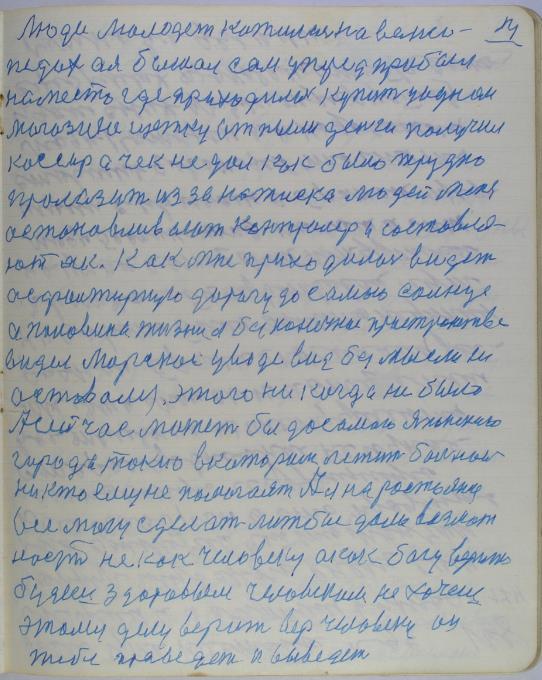 Люди молодеж катился на велоси-
педах а я бывал сам упред пробыл
на месть где приходилось купит у одном
магозине щетку от пыли денги получил
кассир а чек не дал как было трудно
пролазит из за натиска людей меня
останавливают контролер и составля-
ют ак. Как мне приходилось видет
асфальтирную дорогу до самыю солнце
а половина жизни я бы конечне пространстве
видел Морское у воде вид бы мысли ни
оставали, этого никогда не было
А сейчас может бы досамою Японскаю
города токио в котором лежит больной
никто ему не помогаят А я на растояние
все могу сделат лижбы дали возмож
ност не как человеку а как богу верит
будеш здоровым человеком не хочеш
этому делу верит вер человеку он
тебя праведет и выведет